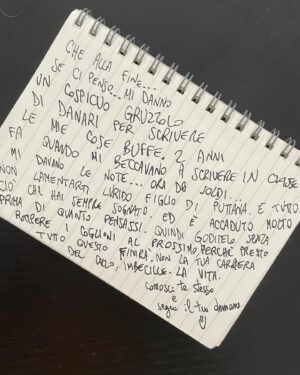 CHE ALLA FINE...
SE CI PENSO... MI DANNO
UN COSPICUO GRUZZOLO
DI DANARI PER SCRIVERE
LE MIE COSE BUFFE. 2 ANNI
FA QUANDO MI BECCAVANO A SCRIVERE IN CLASSE
MI DAVANO LE NOTE... ORA DE SOLDI...
NON LAMENTARTI LURIDO FIGLIO DI PUTTANA. È TUTTO
CIÒ CHE HAI SEMPRE SOGNATO, ED È ACCADUTO MOLTO
PRIMA DI QUANTO PENSASSI. QUINDI GODITELO SENZA
ROMPERE I COGLIONI AL PROSSIMO PERCHÉ PRESTO
TUTTO QUESTO FINIRÀ. NON LA TUA CARRIERA
DEL CAZZO, IMBECILLE. LA VITA.
CONOSCI TE STESSO
E
SEGUI IL TUO DEMONE